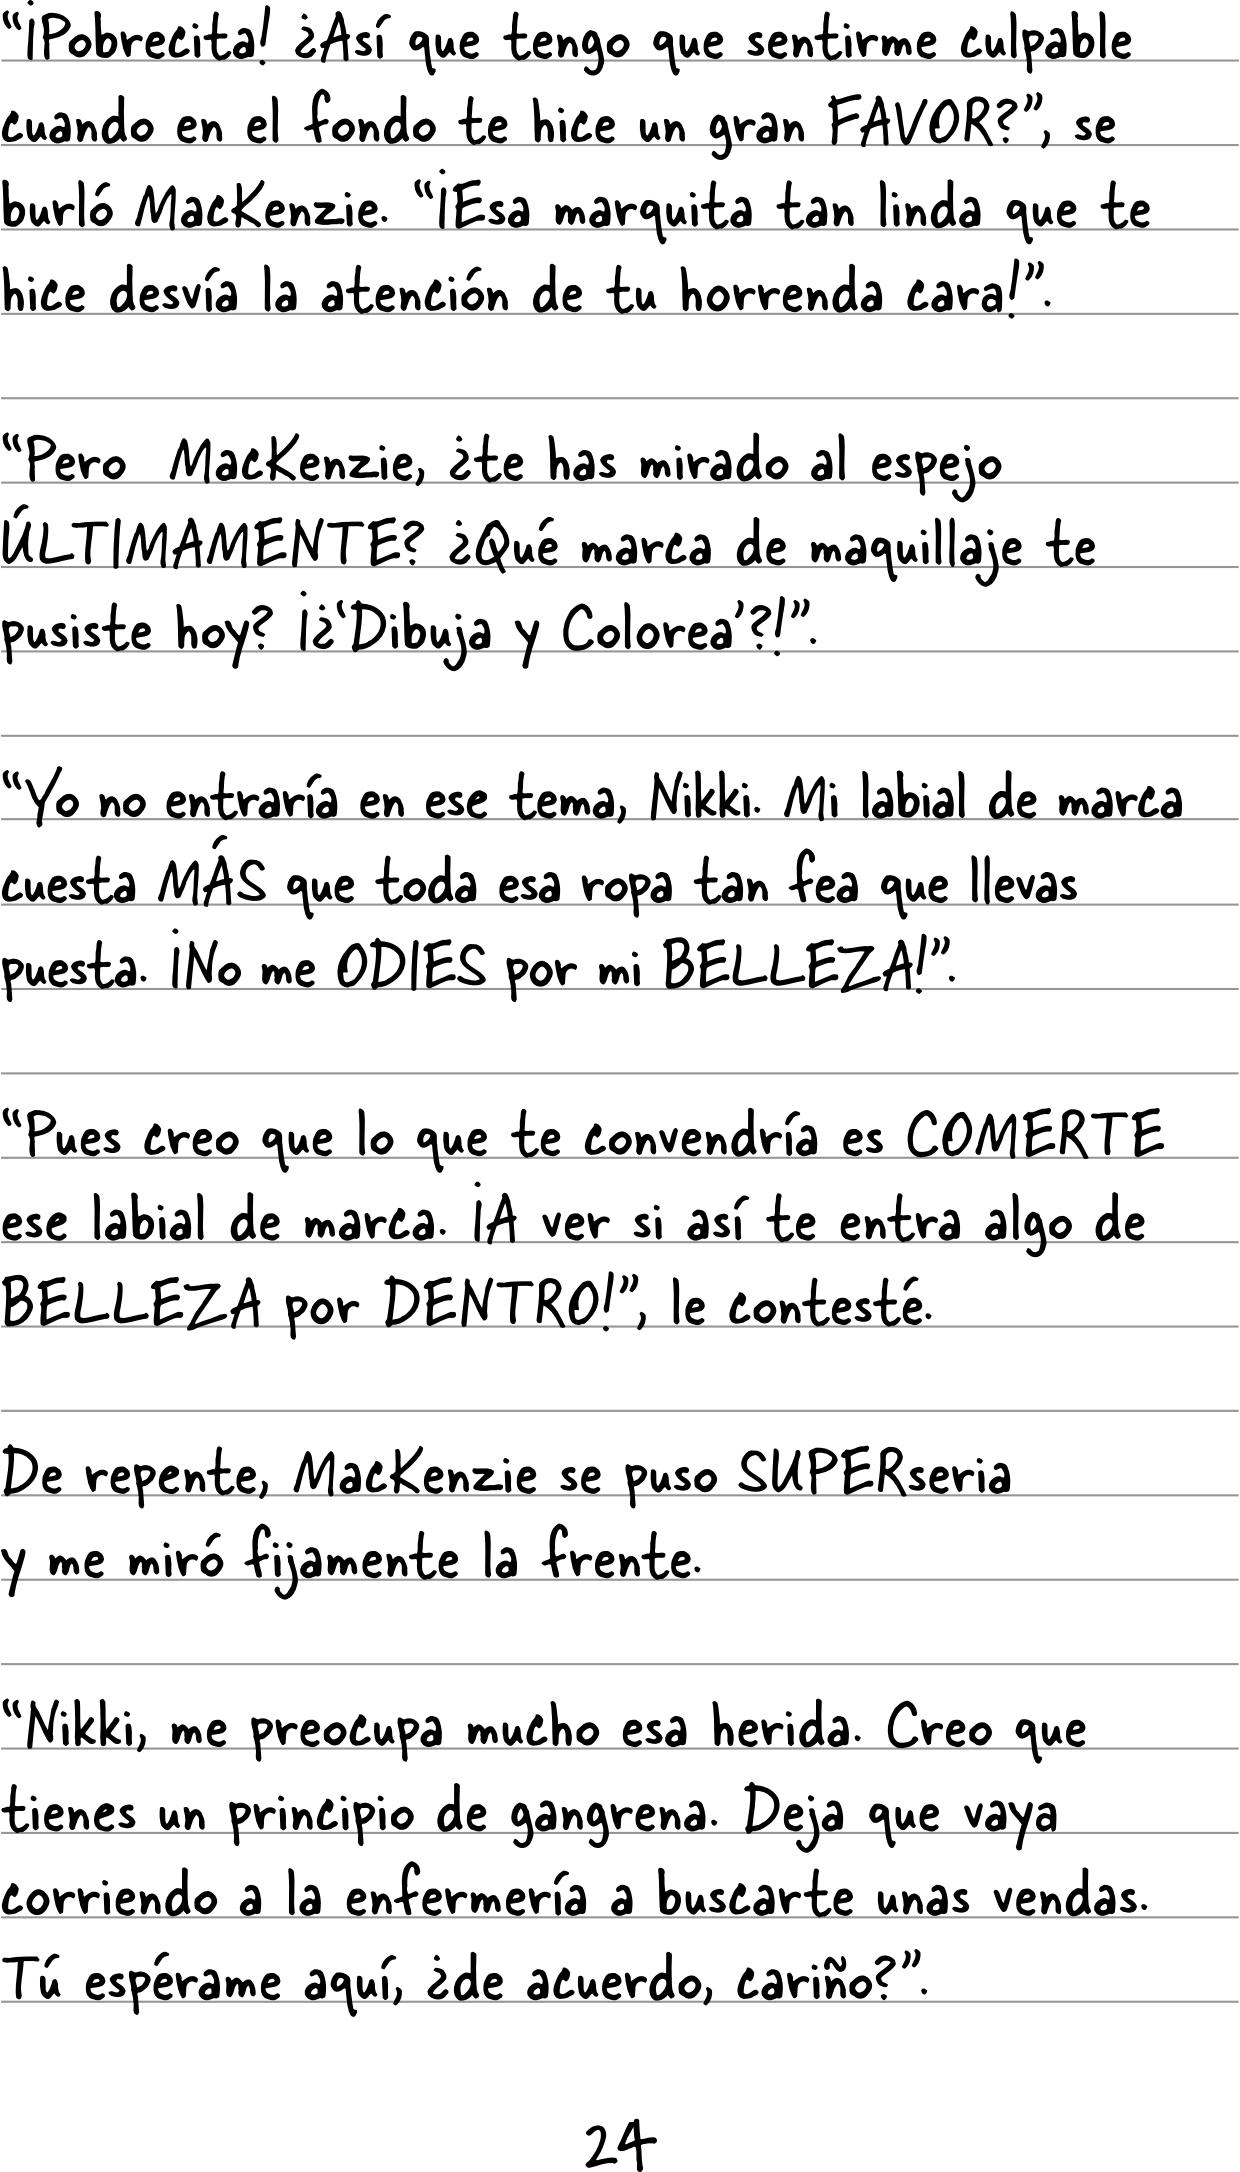 “¡Pobrecita! ¿Así que tengo que sentirme culpable
cuando en el fondo te hice un gran FAVOR?”, se
burló MacKenzie. “¡Esa marquita tan linda que te
hice desvía la atención de tu horrenda cara!”.
“Pero MacKenzie, ¿te has mirado al espejo
ÚLTIMAMENTE? ¿Qué marca de maquillaje te
pusiste hoy? ¡¿‘Dibuja y Colorea’?!”.
“Yo no entraría en ese tema, Nikki. Mi labial de marca
cuesta MÁS que toda esa ropa tan fea que llevas
puesta. ¡No me ODIES por mi BELLEZA!”.
“Pues creo que lo que te convendría es COMERTE
ese labial de marca. ¡A ver si así te entra algo de
BELLEZA por DENTRO!”, le contesté.
De repente, MacKenzie se puso SUPERseria
y me miró fijamente la frente.
“Nikki, me preocupa mucho esa herida. Creo que
tienes un principio de gangrena. Deja que vaya
corriendo a la enfermería a buscarte unas vendas.
Tú espérame aquí, ¿de acuerdo, cariño?”.
24